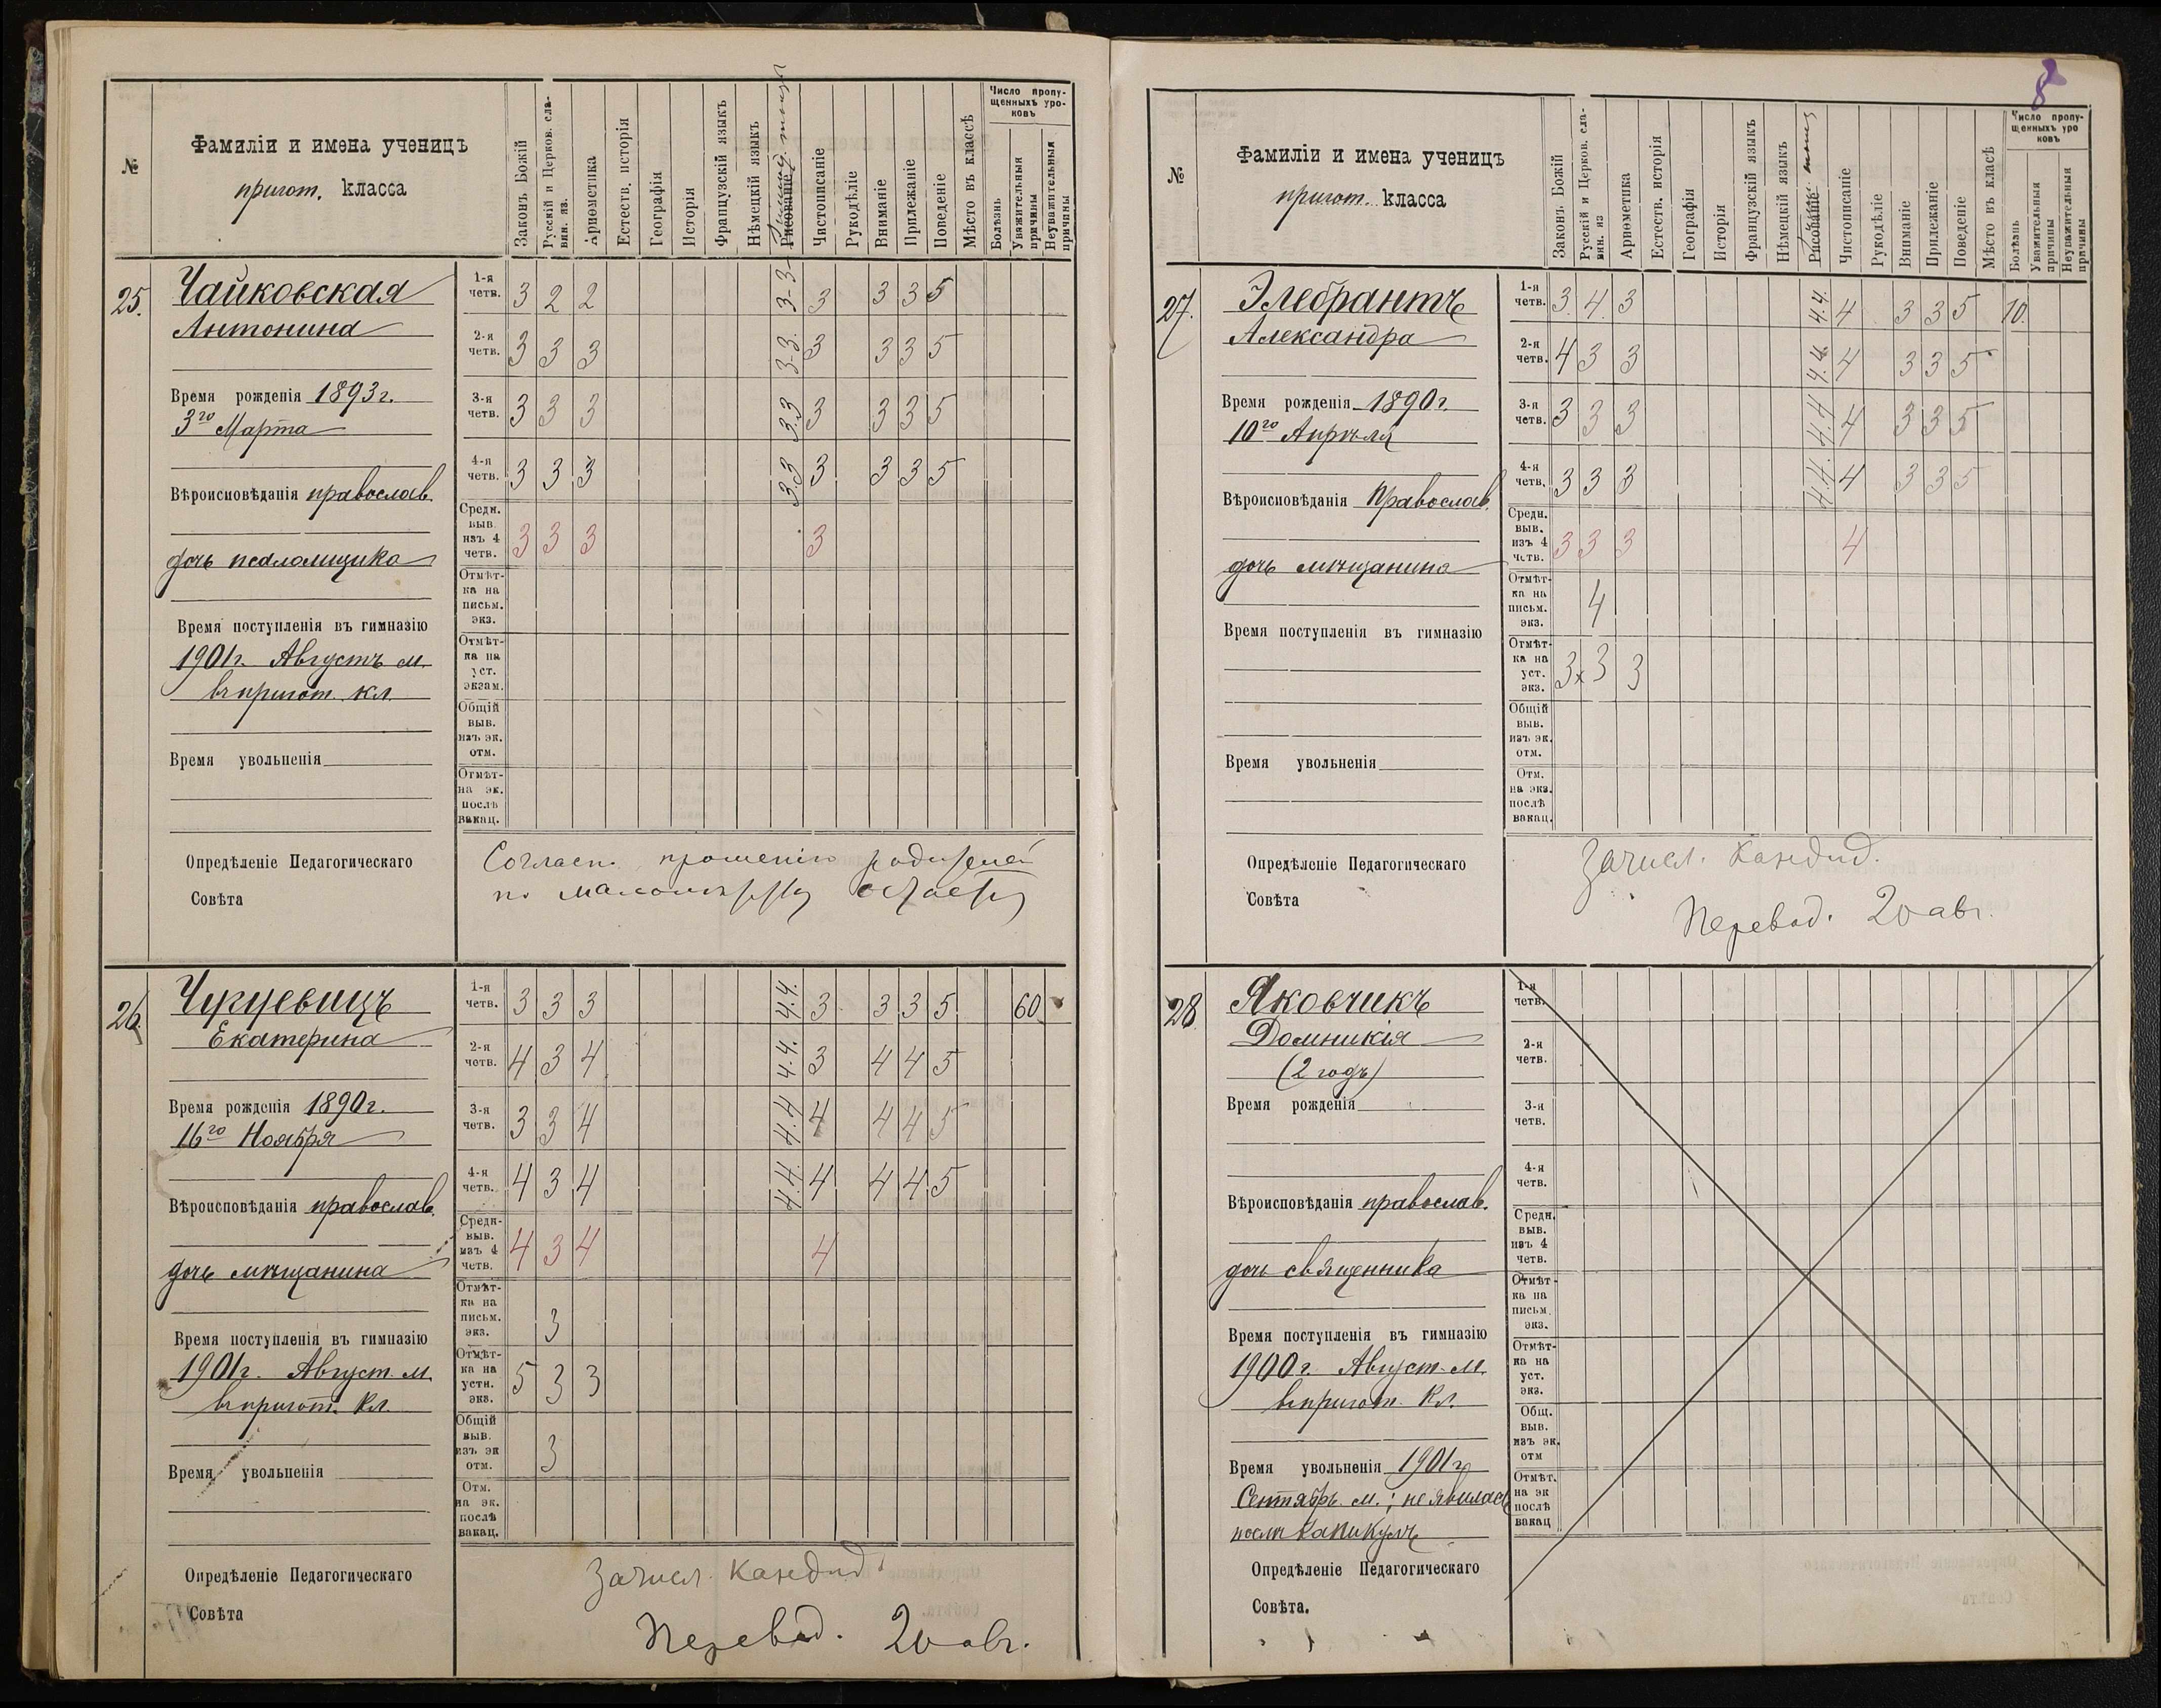 №
Фамиліи и имена ученицъ
пригот. класса
Законъ Божій
Русскій и Церков. сла-
вян. яз.
Ариѳметика
Естеств. исторія
Географія
Исторія
Французскій языкъ
Нѣмецкій языкъ
Рисованіе
Чистописаніе
Рукодѣліе
Вниманіе
Прилежаніе
Поведеніе
Мѣсто въ классѣ
Число пропу-
щенныхъ уро-
ковъ
Болѣзнь
Уважительныя
причины
Неуважительныя
причины
25.
Чайковская
Антонина
Время рожденія 1893 г.
3го Марта
Вѣроисповѣданія православ.
дочь псаломщика
Время поступленія въ гимназію
1901 г. Августъ м.
въ пригот. кл.
Время увольненія
1-я четв. 3 2 2 3-3 3 3 3 5
2-я четв. 3 3 3 3-3. 3 3 3 5
3-я четв. 3 3 3 3.3 3 3 3 5
4-я четв. 3 3 3 3.3 3 3 3 5
Средн. выв. изъ 4 четв. 3 3 3 3
Отмѣт-ка на письм. экз.
Отмѣт-ка на уст. экзам.
Общій выв. изъ эк. отм.
Отмѣт- на эк. послѣ вакац.
Опредѣленіе Педагогическаго
Совѣта
Согласн. прошенію родителей
26.
Чугуевицъ
Екатерина
Время рожденія 1890 г.
16го Ноября
Вѣроисповѣданія православ.
дочь мѣщанина
Время поступленія въ гимназію
1901 г. Август. м.
въ пригот. кл.
Время увольненія
1-я четв. 3 3 3 4.4. 3 3 3 5 60
2-я четв. 4 3 4 4.4. 3 4 4 5
3-я четв. 3 3 4 4.4 4 4 4 5
4-я четв. 4 3 4 4.4. 4 4 4 5
Средн- выв. изъ 4 четв. 4 3 4 4
Отмѣт-ка на письм. экз. 3
Отмѣт-ка на устн. экз. 5 3 3
Общій выв. изъ эк отм. 3
Отм. на эк. послѣ вакац.
Опредѣленіе Педагогическаго
Совѣта
Зачисл. кандид.
Перевод. 20 авг.
8
№
Фамиліи и имена ученицъ
пригот. класса
Законъ Божій
Русскій и Церков. сла-
вян. яз
Ариѳметика
Естеств. исторія
Географія
Исторія
Французскій языкъ
Нѣмецкій языкъ
Рисованіе
Чистописаніе
Рукодѣліе
Вниманіе
Прилежаніе
Поведеніе
Мѣсто въ класѣ
Число пропу-
щенныхъ уро
ковъ
Болѣзнь
Уважительныя
причины
Неуважительныя
причины
27.
Элебрантъ
Александра
Время рожденія 1890 г.
10го Апрѣля
Вѣроисповѣданія Православ.
дочь мѣщанина
Время поступленія въ гимназію
Время увольненія
1-я четв. 3. 4. 3 4.4. 4 3 3 5 10.
2-я четв. 4 3 3 4.4. 4 3 3 5
3-я четв. 3 3 3 4.4 4 3 3 5
4-я четв. 3 3 3 4.4. 4 3 3 5
Средн. выв. изъ 4 четв. 3 3 3 4
Отмѣт-ка на письм. экз. 4
Отмѣт-ка на уст. экз. 3 х 3 3
Общій выв. изъ эк. отм.
Отм. на экз. послѣ вакац.
Опредѣленіе Педагогическаго
Совѣта
Зачисл. кандид.
Перевод. 20 авг.
28
Яковчикъ
Домникія
(2 годъ)
Время рожденія
Вѣроисповѣданія православ.
дочь священника
Время поступленія въ гимназію
1900 г. Август. м.
въ пригот. кл.
Время увольненія 1901 г.
Сентябрь м.; не явилась
послѣ каникулъ
1-я четв.
2-я четв.
3-я четв.
4-я четв.
Средн. выв. изъ 4 четв.
Отмѣт-ка на письм. экз.
Отмѣт-ка на уст. экз.
Общ. выв. изъ эк. отм
Отмѣт. на эк послѣ вакац
Опредѣленіе Педагогическаго
Совѣта.